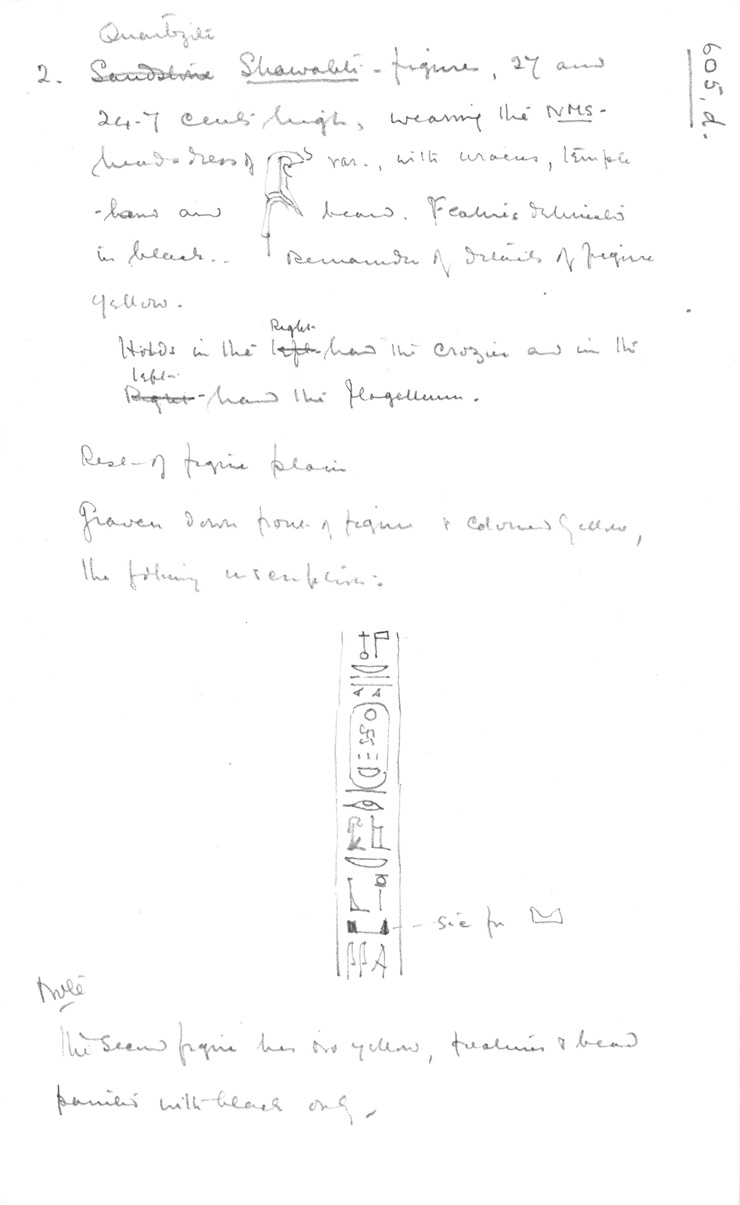 605, d.
Quartzite
2. Sandstone Shawabti-figures, 27 and
24.7 cents high, wearing the NMS-
head-dress of var., with uraeus, temple
-band and beard. Features delineated
in black.. Remainder of details of figure
yellow.
Right-
Holds in the left hand the crozier and in the
left-
Right-hand the flagellum.
Rest of figure plain
Graven down front of figure & coloured yellow,
the following inscription:
sic for
Note
The second figure has no yellow, features & beard
painted with black only.